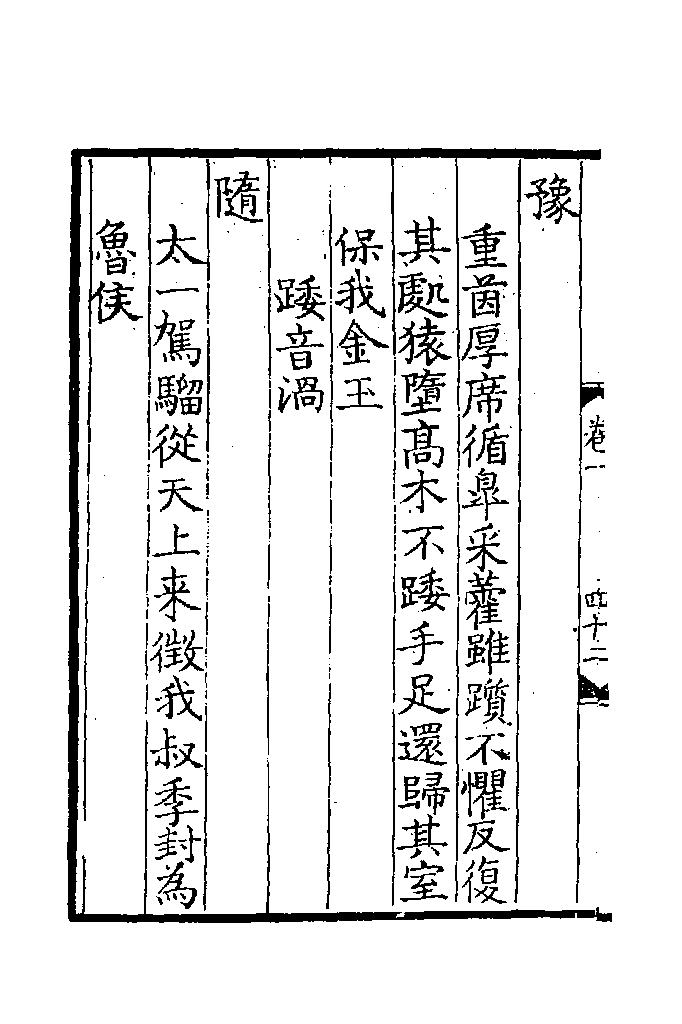 豫
重茵厚席循臯采藿雖躓不懼反復
其處猿墮高木不踒手足還歸其室
保我金玉
踒音渦
隨
太一駕騮從天上来徵我叔季封為
魯侯
卷一
四十二